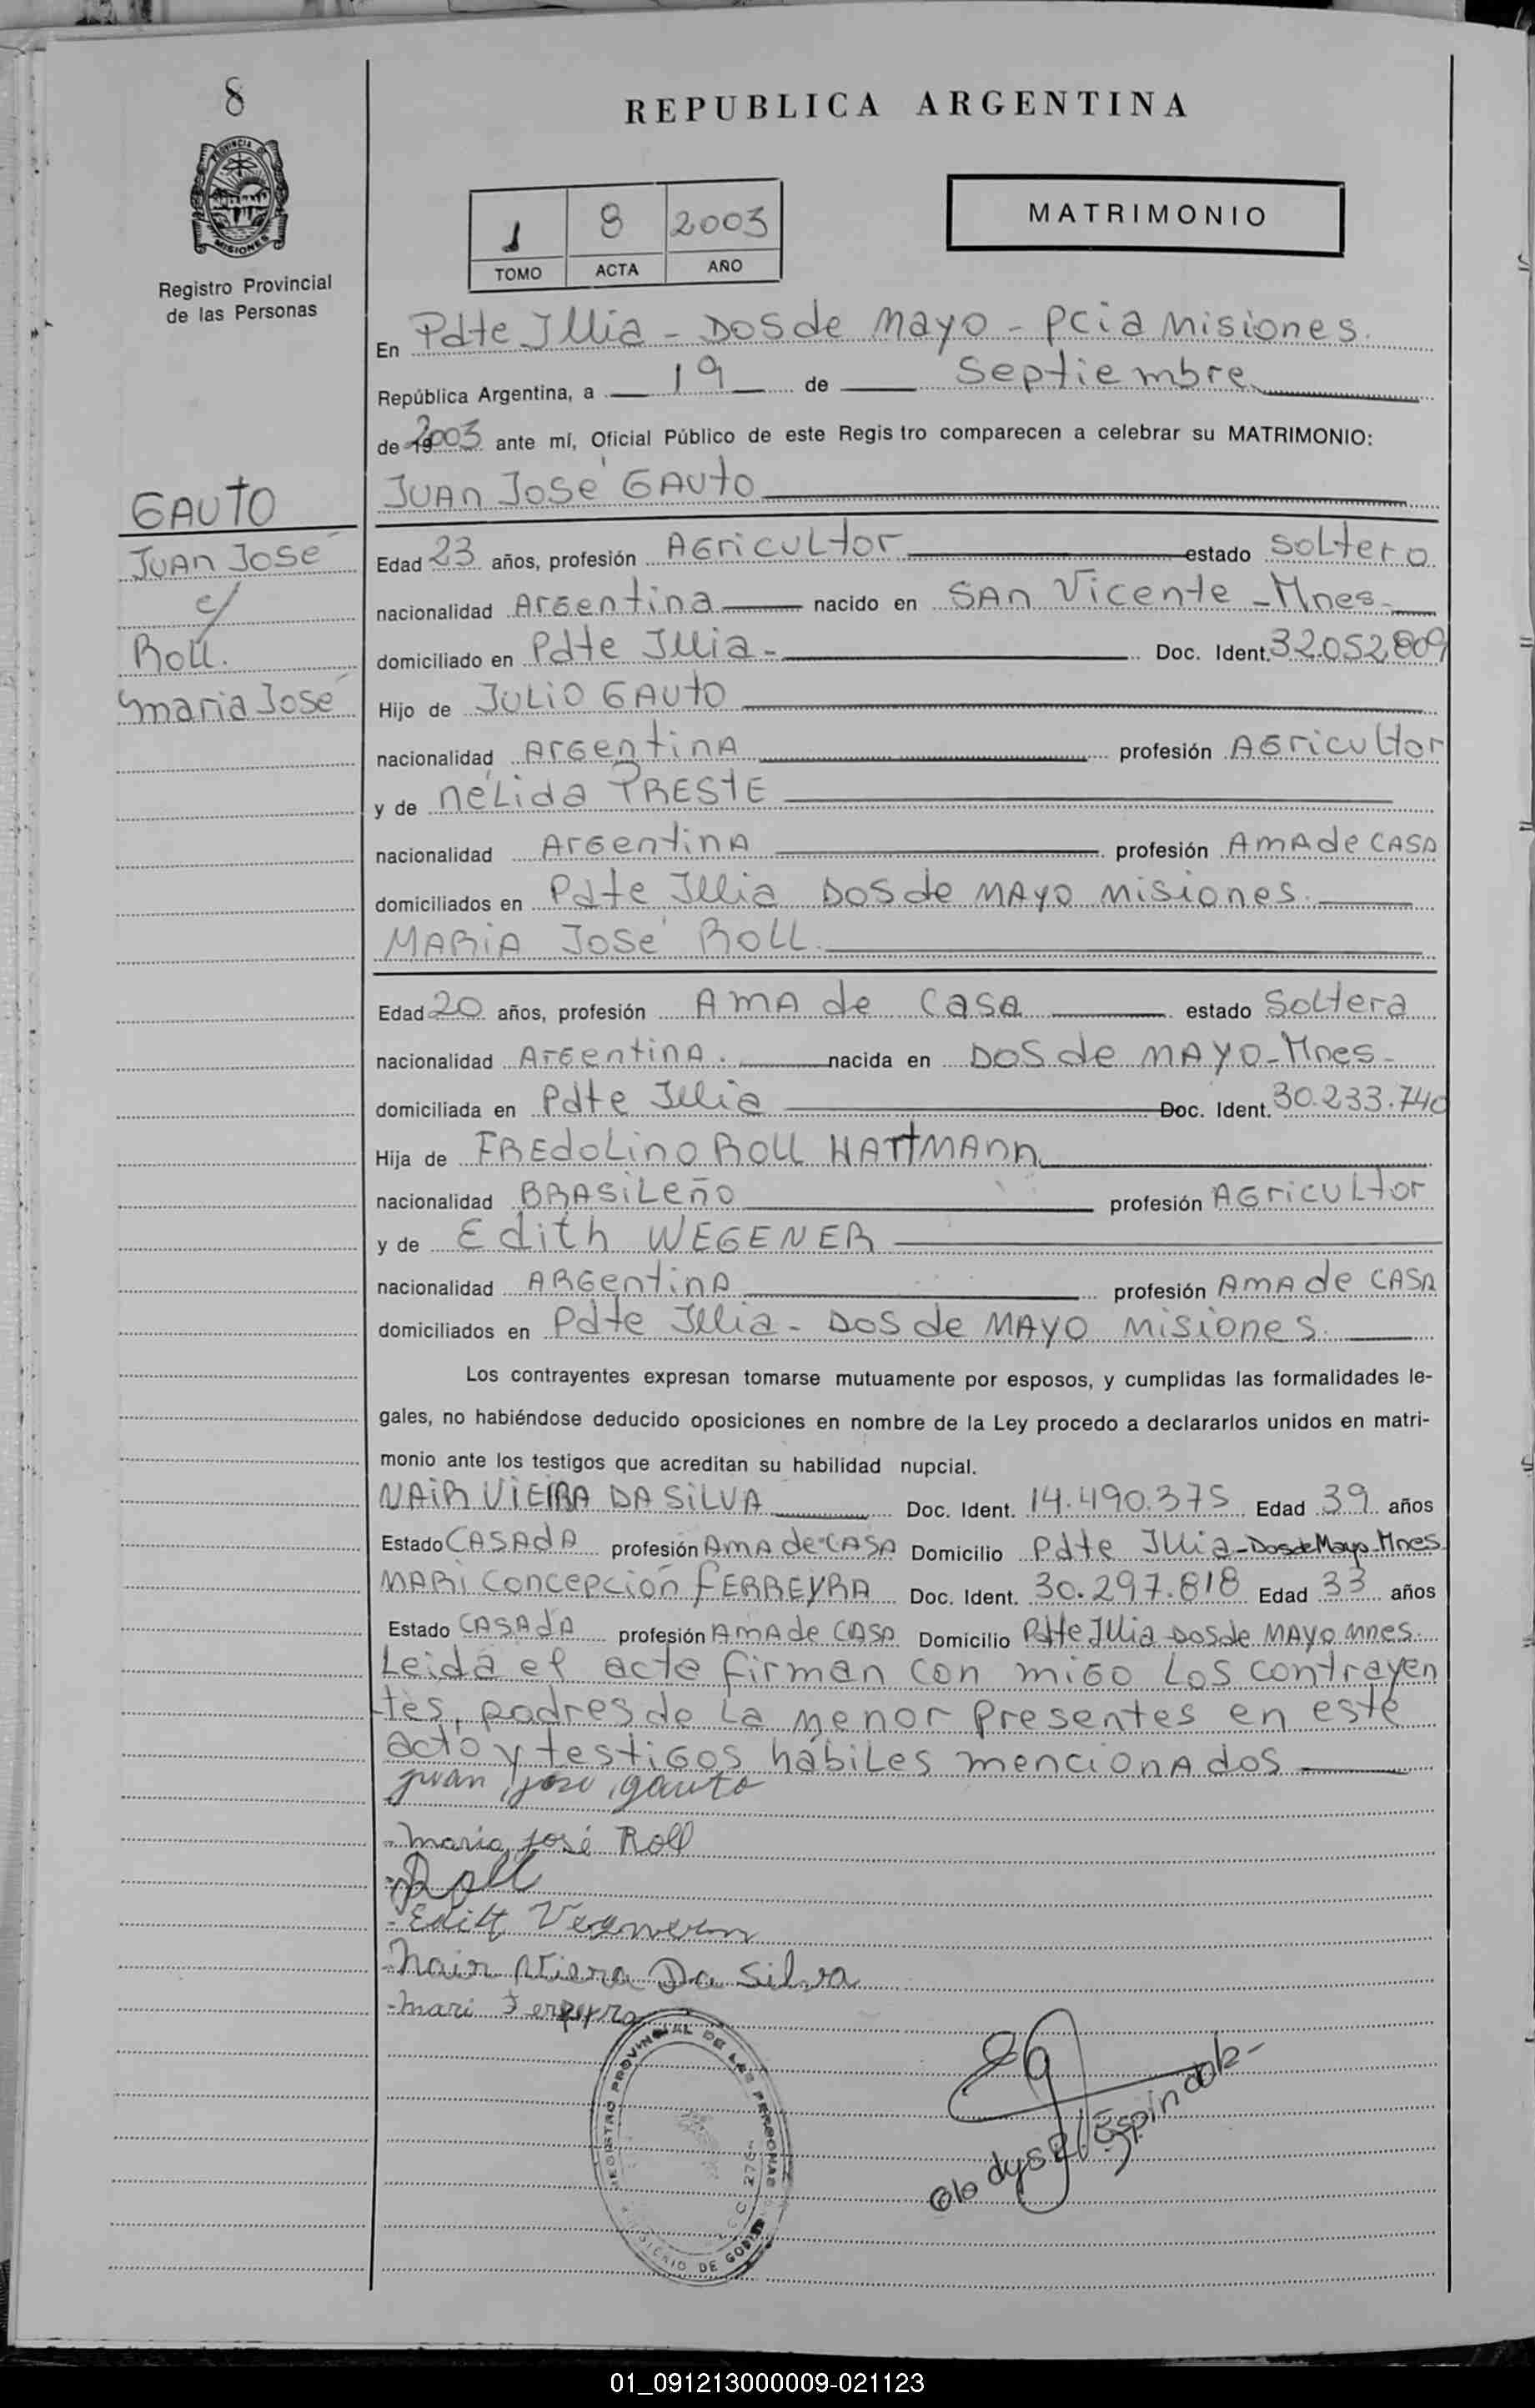 8
REPUBLICA ARGENTINA
PROVINCIA DE MISIONES
Registro Provincial
de las Personas
1 8 2003
TOMO ACTA AÑO
MATRIMONIO
En Pdte Illia - Dos de Mayo - Pcia Misiones.
República Argentina, a 19 de Septiembre
de 19 2003 ante mí, Oficial Público de este Regis tro comparecen a celebrar su MATRIMONIO:
GAUTO
Juan José
c/
Roll.
Maria José
Juan José GAuto
Edad 23 años, profesión Agricultor estado Soltero
nacionalidad Argentina nacido en San Vicente - Mnes.
domiciliado en Pdte Illia - Doc. Ident. 32.052.809
Hijo de Julio GAuto
nacionalidad Argentina profesión Agricultor
y de Nélida PRESTE
nacionalidad Argentina profesión Ama de casa
domiciliados en Pdte Illia Dos de Mayo Misiones.
MARIA José Roll.
Edad 20 años, profesión Ama de casa estado Soltera
nacionalidad Argentina. nacida en Dos de Mayo - Mnes -
domiciliada en Pdte Illia Doc. Ident. 30.233.740
Hija de FREdoLino Roll HARTMANN
nacionalidad BRASILEÑO profesión Agricultor
y de Edith WEGENER
nacionalidad Argentina profesión Ama de casa
domiciliados en Pdte Illia - Dos de Mayo Misiones.
Los contrayentes expresan tomarse mutuamente por esposos, y cumplidas las formalidades le-
gales, no habiéndose deducido oposiciones en nombre de la Ley procedo a declararlos unidos en matri-
monio ante los testigos que acreditan su habilidad nupcial.
NAIR VIEIRA DA SILVA Doc. Ident. 14.490.375 Edad 39 años
Estado CASADA profesión Ama de casa Domicilio Pdte Illia - Dos de Mayo - Mnes
MARI Concepción FERREYRA Doc. Ident. 30.297.818 Edad 33 años
Estado CASADA profesión Ama de casa Domicilio Pdte Illia Dos de Mayo Mnes.
Leida el acta firman con migo los contrayen
tes, padres de la menor presentes en este
acto y testigos hábiles mencionados
juan jose gauto
- maria josé Roll
- Roll
- Editt
- Nair Viera Da Silva
- Mari Ferreyra
REGISTRO PROVINCIAL DE LAS PERSONAS
MINISTERIO DE GOBIERNO
Gladys E. Espindola
01_091213000009-021123